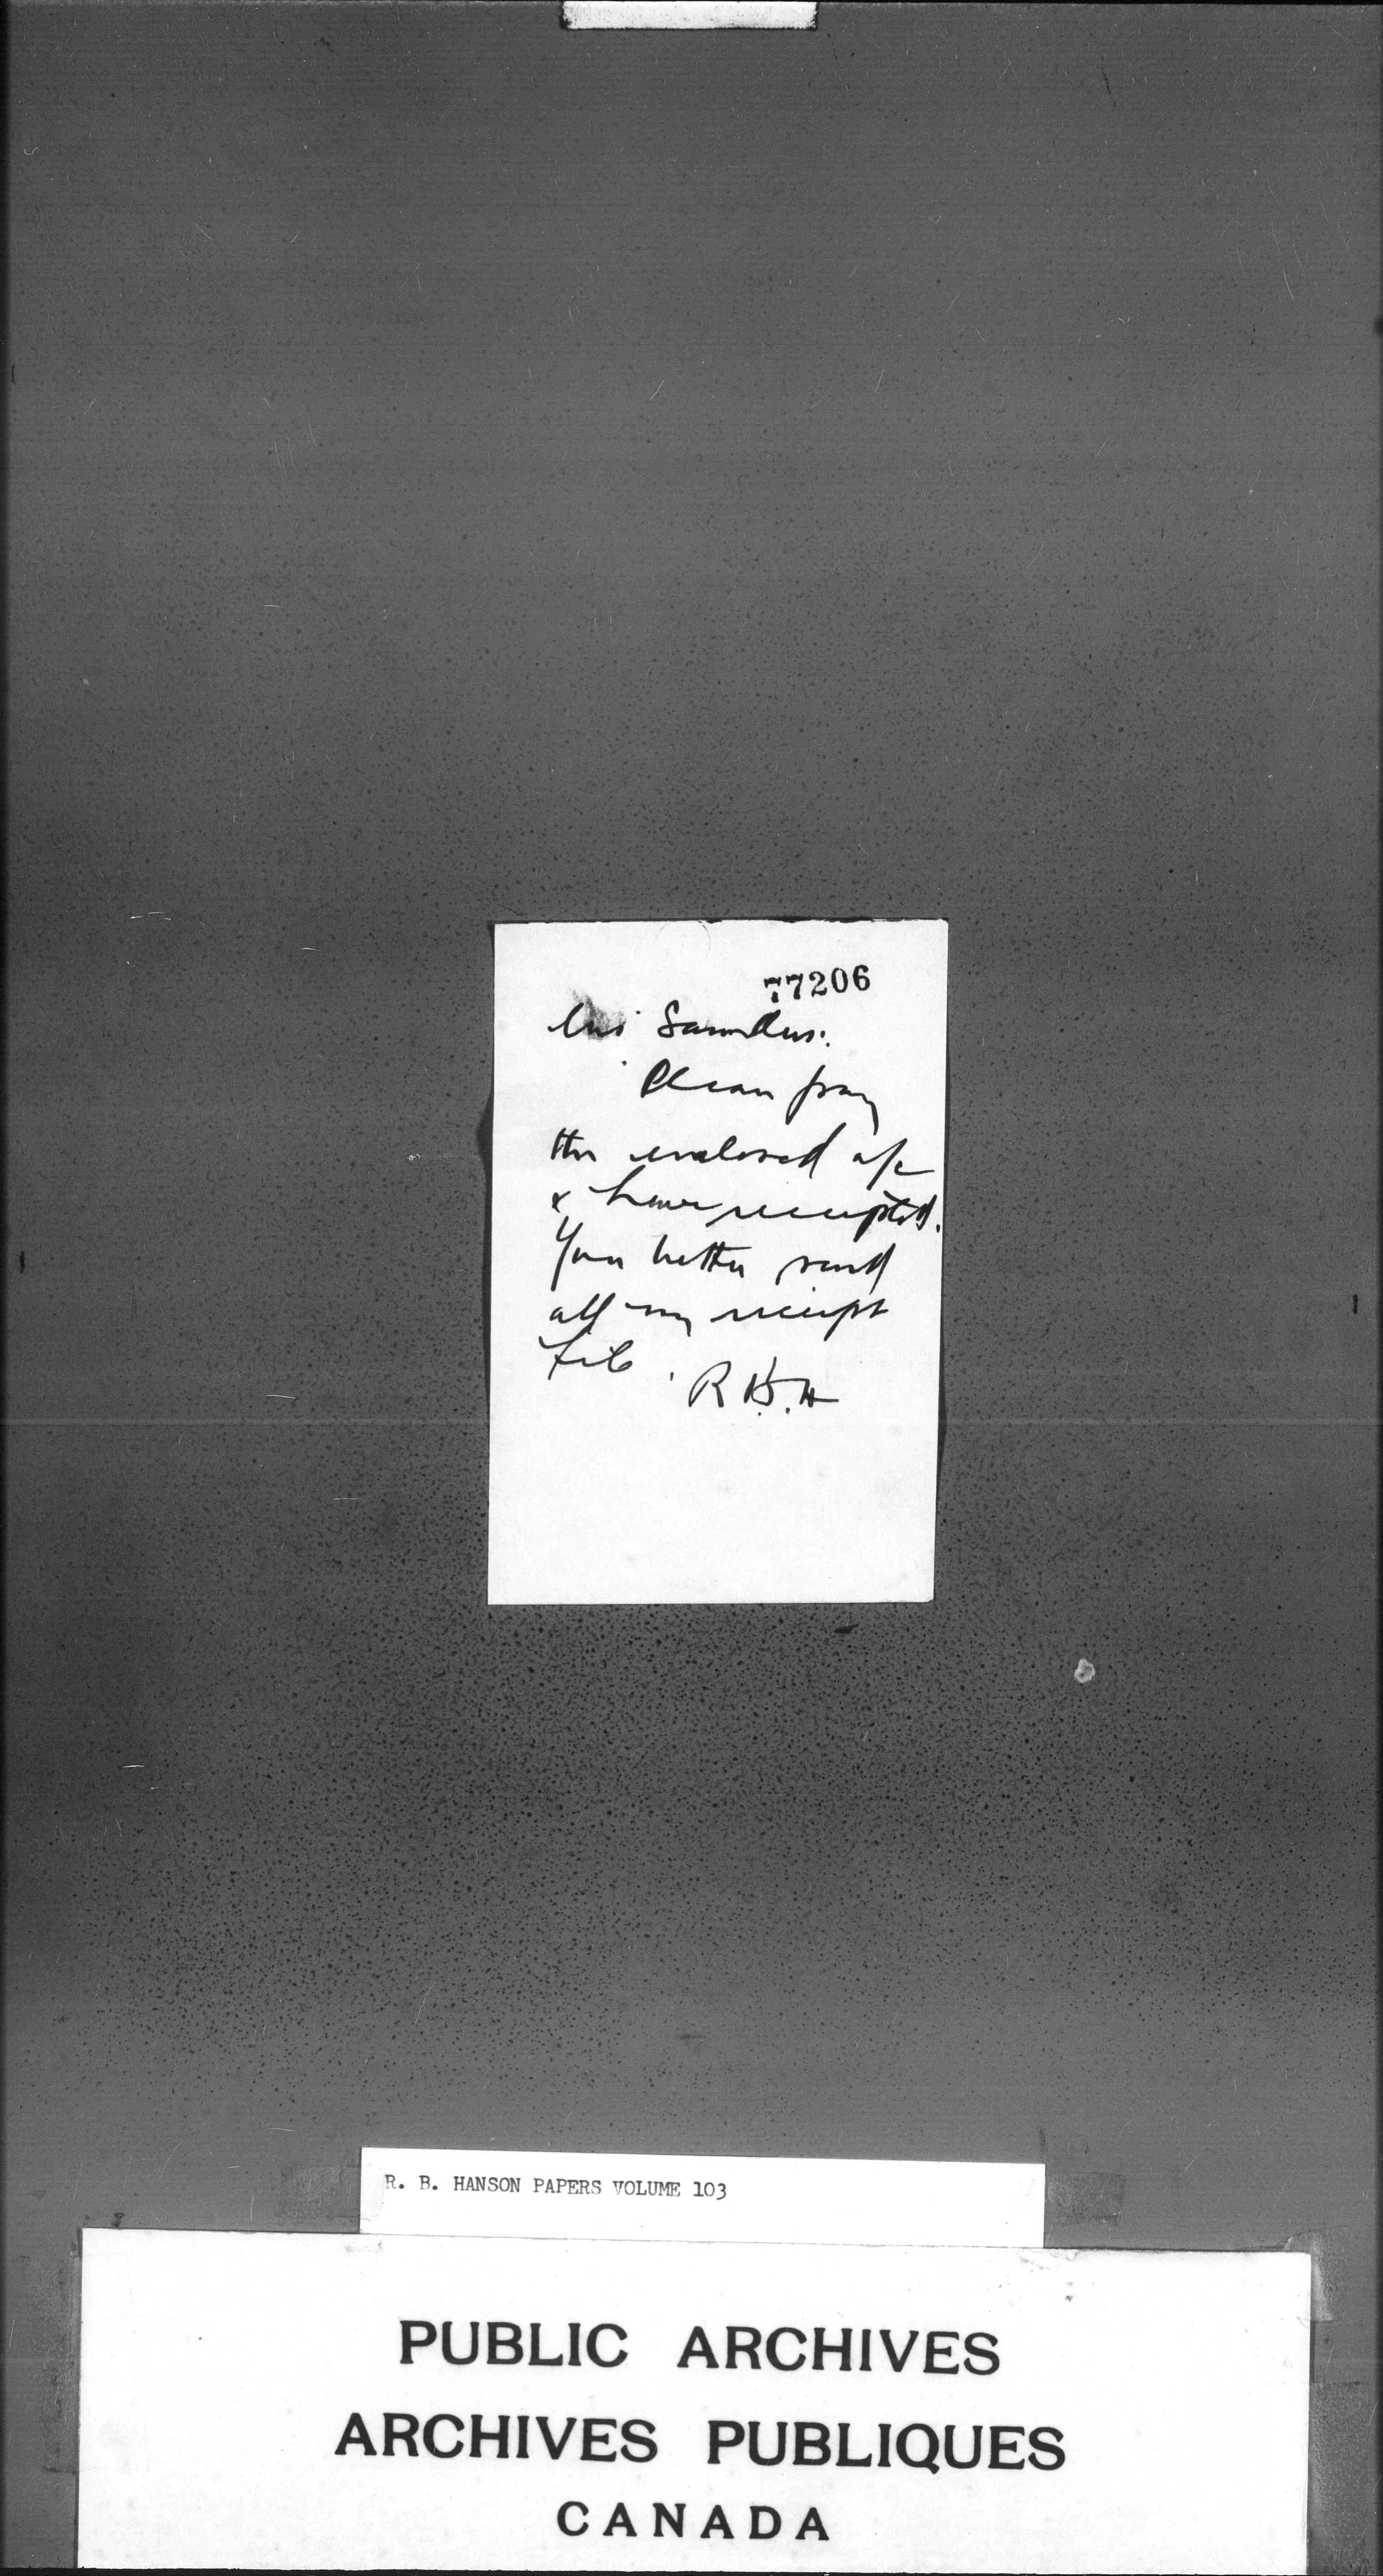 77206
Miss Saunders:
Please pay
the enclosed a/c
& have receipted.
You better send
all my receipt
file.
R.B.H
R. B. HANSON PAPERS VOLUME 103
PUBLIC ARCHIVES
ARCHIVES PUBLIQUES
CANADA